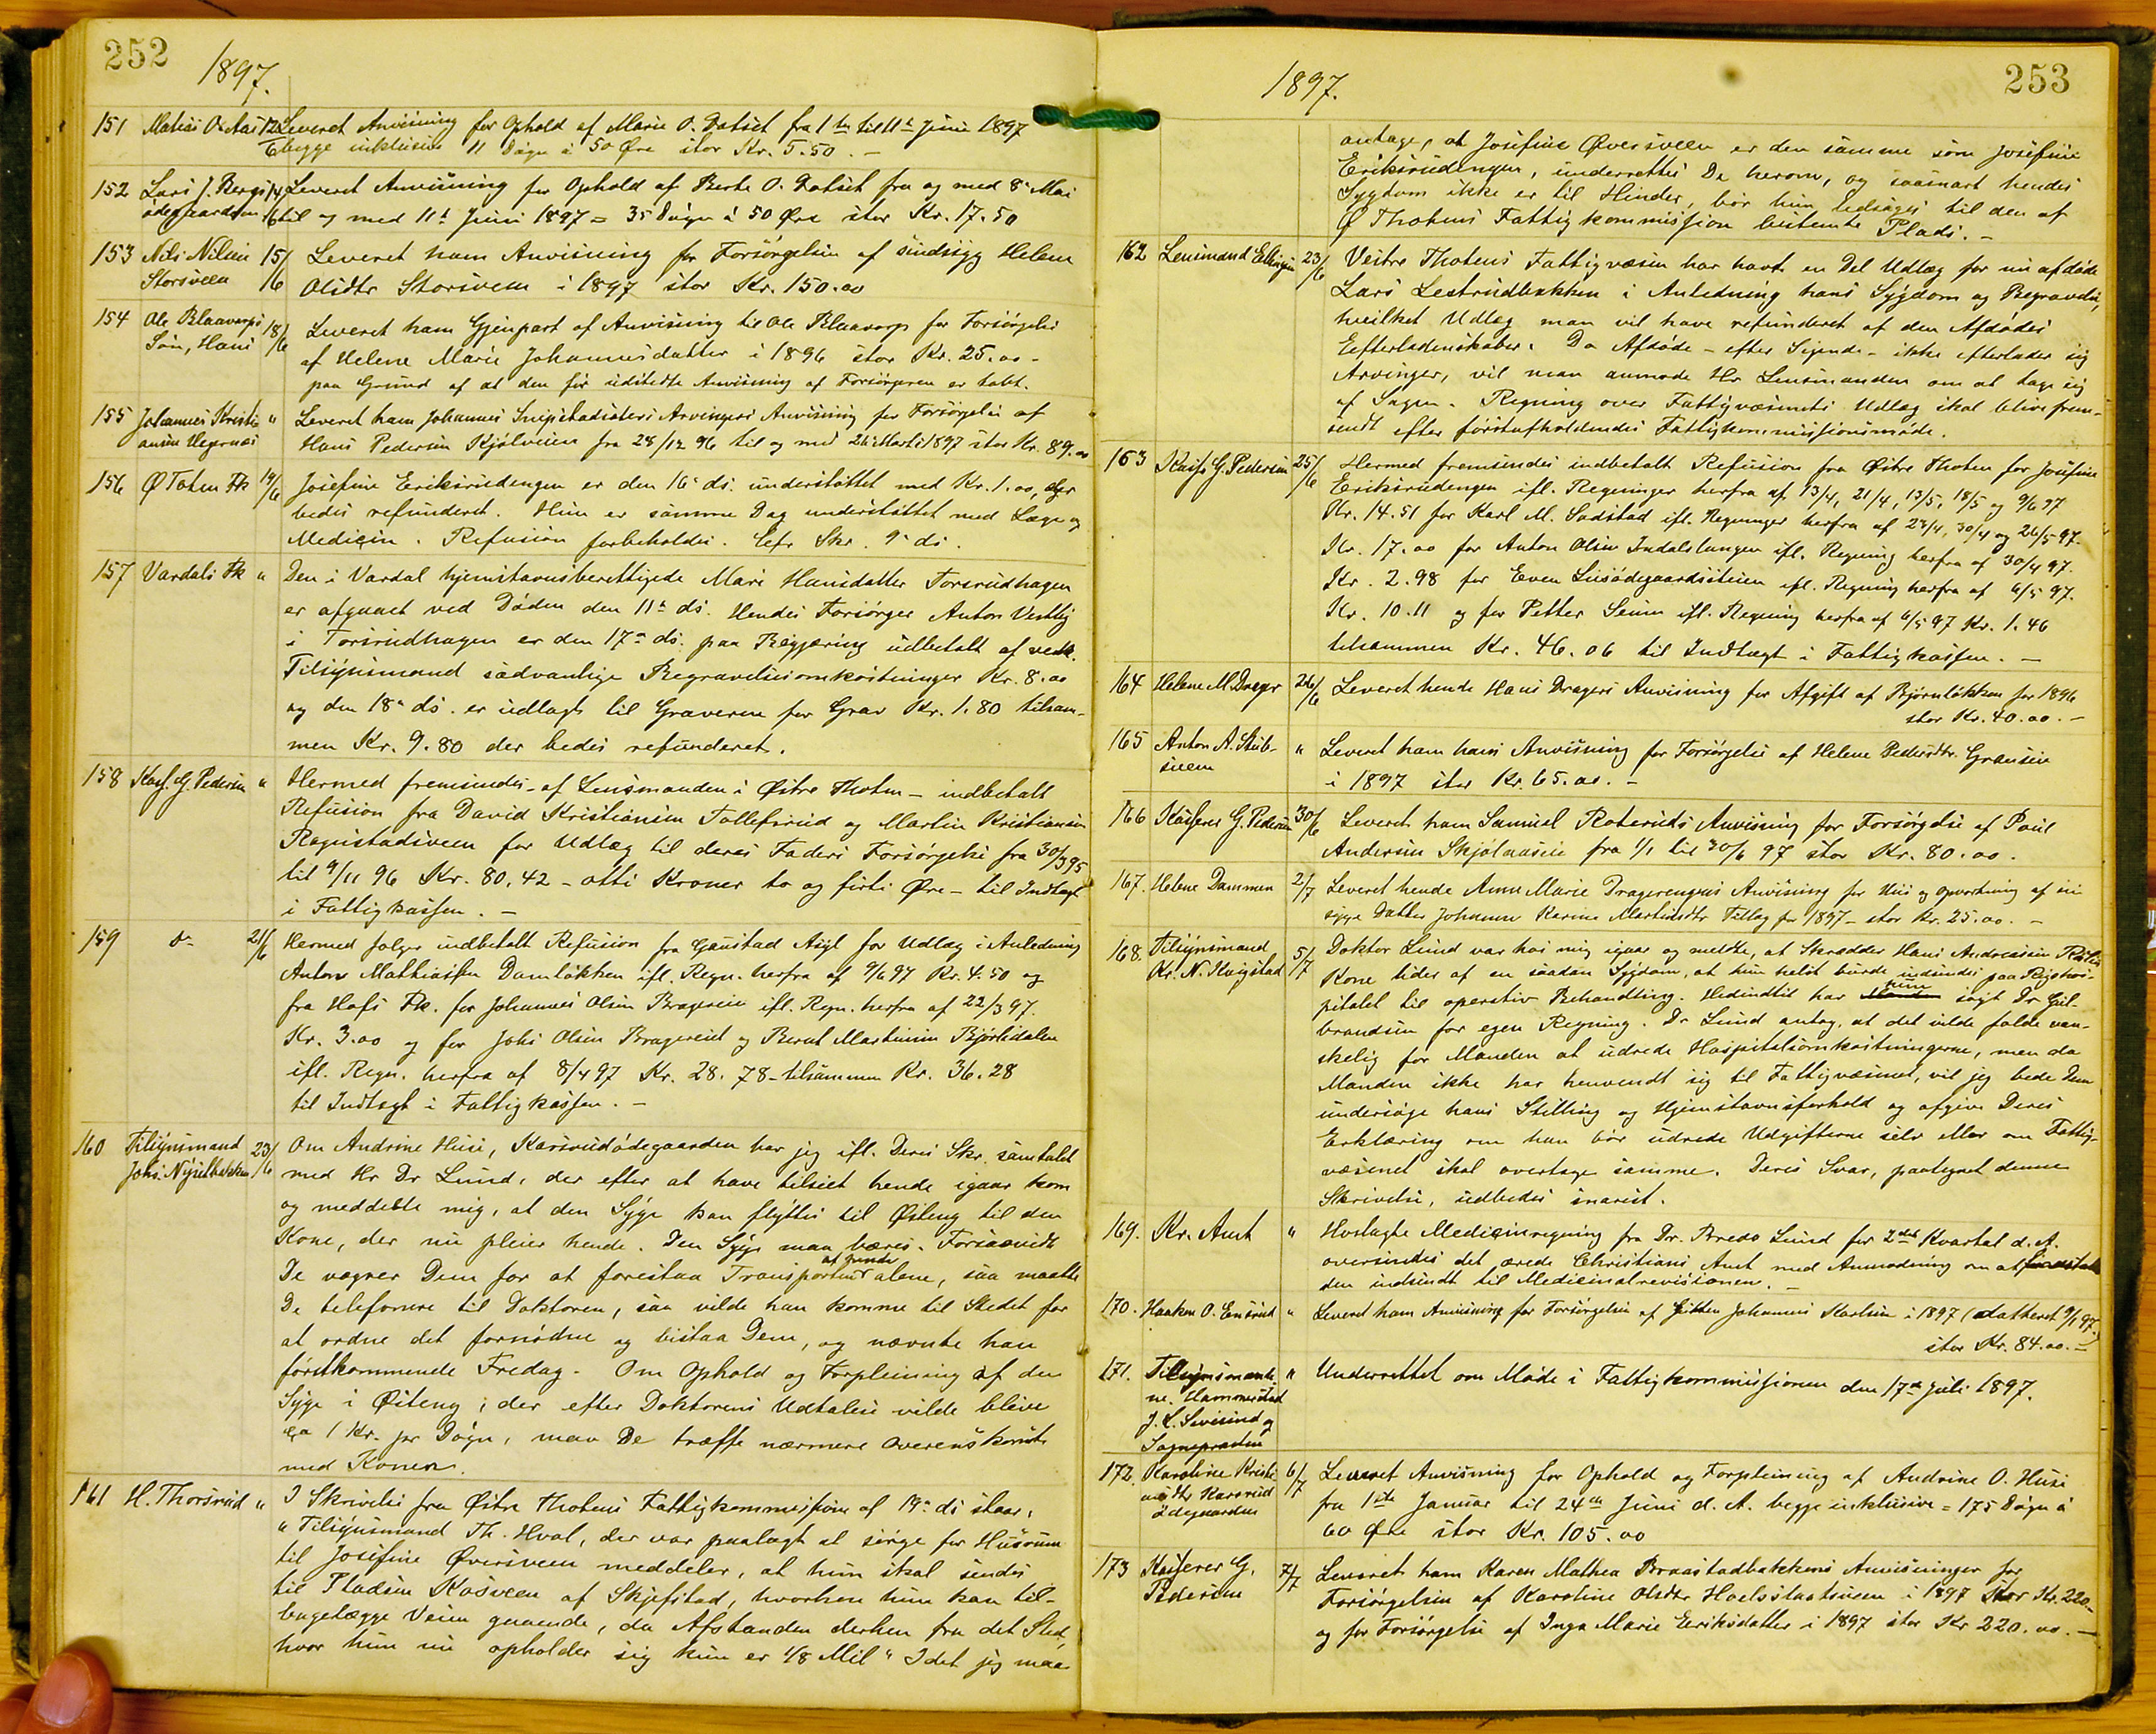 252
1897.
151 Matias O. Aas 12/6 Leveret Anvisning for Ophold af Marie O. Fatset fra 1ste til 11te Juni 1897
begge inklusive 11 Døgn à 50 Øre stor Kr. 5.50. –
152 Lars J. Bergs 14/6 Leveret Anvisning for Ophold af Berte O. Fatset fra og med 8de Mai
ødegaarden til og med 11te Juni 1897 = 35 Døgn à 50 Øre stor Kr. 17.50
153 Nils Nilsen 15/6 Leveret ham Anvisning for Forsørgelsen af sindssyg Helene
Storsveen Olsdtr Storsveen i 1897 stor Kr. 150.00
154 Ole Blaavarps 18/6 Leveret ham Gjenpart af Anvisning til Ole Blaavarp for Forsørgelse
Søn, Hans af Helene Marie Johannesdatter i 1896 stor Kr. 25.00 –
paa Grund af at den før udstedte Anvisning af Forsørgeren er tabt.
155 Johannes Kristi- " Leveret ham Johannes Snipstadsæters Arvingers Anvisning for Forsørgelse af
ansen Hegernæs Hans Pedersen Kjølveien fra 28/12 96 til og med 26 Marts 1897 stor Kr. 89.00
156 Ø Toten Fk 19/6 Josefine Eriksrudengen er den 16de ds. understøttet med Kr. 1.00, der
bedes refunderet. Hun er samme Dag understøttet med Læge og
Medicin. Refusion forbeholdes. Cfr Skr. 9de ds.
157 Vardals Fk " Den i Vardal hjemstavnsberettigede Mari Hansdatter Forsrudhagen
er afgaaet ved Døden den 11te ds. Hendes Forsørger Anton Vestby
i Forsrudhagen er den 17de ds. paa Begjæring udbetalt af vedk.
Tilsynsmand sædvanlige Begravelsesomkostninger Kr. 8.00
og den 18de ds. er udlagt til Graveren for Grav Kr. 1.80 tilsam-
men Kr. 9.80 der bedes refunderet.
158 Kass. G. Pedersen " Hermed fremsendes – af Lensmanden i Østre Thoten – indbetalt
Refusion fra David Kristiansen Tollefsrud og Martin Kristiansen
Rognstadsveen for Udlæg til deres Faders Forsørgelse fra 30/3 95
til 9/11 96 Kr. 80,42 – otti Kroner to og firti Øre – til Indtægt
i Fattigkassen. –
159 do 21/6 Hermed følger indbetalt Refusion fra Gaustad Asyl for Udlæg i Anledning
Anton Mathiassen Damløkken ifl. Regn. herfra af 9/6 97 Kr. 4.50 og
fra Hofs Fk. for Johannes Olsen Bragereie ifl. Regn. herfra af 22/3 97.
Kr. 3.00 og for Johs Olsen Bragereiet og Bernt Martinsen Bjørlidalen
ifl. Regn. herfra af 8/4 97 Kr. 28.78 – tilsammen Kr. 36.28
til Indtægt i Fattigkassen. –
160 Tilsynsmand 23/6 Om Andrine Husi, Karsrudødegaarden har jeg ifl. Deres Skr. samtalt
Johs. Nysetbakken med Hr Dr Lund, der efter at have tilseet hende igaar kom
og meddelte mig, at den Syge kan flyttes til Østeng til den
Kone, der nu pleier hende. Den Syge maa bæres. Forsaavidt
De vægrer Dem for at forestaa Transporten
af hende
alene, saa maatte
De telefonere til Doktoren, saa vilde han komme til Stedet for
at ordne det fornødne og bistaa Dem, og nævnte han
førstkommende Fredag. Om Ophold og Forpleining af den
Syge i Østeng, der efter Doktorens Udtalelse vilde blive
ca 1 Kr. pr Døgn, maa De træffe nærmere Overenskomst
med Konen.
161 H. Thorsrud " I Skrivelse fra Østre Thotens Fattigkommission af 19de ds staar:
"Tilsynsmand Th. Hval, der var paalagt at sørge for Husrum
til Josefine Øversveen meddeler, at hun skal sendes
til Pladsen Kasveen af Skjefstad, hvorhen hun kan til-
bagelægge Veien gaaende, da Afstanden derhen fra det Sted,
hvor hun nu opholder sig kun er 1/8 Mil" Idet jeg maa
253
1897.
antage, at Josefine Øversveen er den samme som Josefine
Eriksrudengen, underrettes De herom, og saasnart hendes
Sygdom ikke er til Hinder, bør hun ledsages til den af
Ø Thotens Fattigkommission bestemte Plads. –
162 Lensmand Ellingsen 23/6 Vestre Thotens Fattigvæsen har havt en Del Udlæg for nu afdøde
Lars Lestrudbakken i Anledning hans Sygdom og Begravelse,
hvilket Udlæg man vil have refunderet af den Afdødes
Eefterladenskaber. Da Afdøde – efter Sigende – ikke efterlader sig
Arvinger, vil man anmode Hr Lensmanden om at tage sig
af Sagen. Regning over Fattigvæsenets Udlæg skal blive frem-
sendt efter førstafholdendes Fattigkommissionsmøde.
163 Kass. G. Pedersen 25/6 Hermed fremsendes indbetalt Refusion fra Østre Thoten for Josefine
Eriksrudengen ifl. Regninger herfra af 13/4, 21/4, 13/5, 18/5 og 9/6 97
Kr. 14.51 for Karl M. Sodstad ifl. Regninger herfra af 23/4, 30/4 og 26/5 97.
Kr. 17.00 for Anton Olsen Indalslungen ifl. Regning herfra af 30/4 97.
Kr. 2.98 for Even Lusødegaardseteren ifl. Regning herfra af 6/5 97.
Kr. 10.11 og for Petter Senen ifl. Regning herfra af 6/5 97 Kr. 1.46
tilsammen Kr. 46.06 til Indtægt i Fattigkassen. –
164 Helene M. Dræger 26/6 Leveret hende Hans Drægers Anvisning for Afgift af Bjørnløkken for 1896
stor Kr. 40.00. –
165 Anton A. Stub- " Leveret ham hans Anvisning for Forsørgelse af Helene Pedersdtr. Gransen
sveen i 1897 stor Kr. 65.00. –
166 Kasserer G. Pedersen 30/6 Leveret ham Samuel Roteruds Anvisning for Forsørgelse af Poul
Andersen Skjølaasen fra 1/1 til 30/6 97 stor Kr. 80.00.
167. Helene Dammen 2/7 Leveret hende Anne Marie Dragerengens Anvisning for Hus og Opvartning af sin
syge Datter Johanne Karine Martinsdtr Tillæg for 1897 – stor Kr. 25.00. –
168. Tilsynsmand 5/7 Doktor Lund var hos mig igaar og meldte, at Skrædder Hans Andreassen
Kr. N. Kvigstad Kone lider af en saadan Sygdom, at hun helst burde indsendes paa Rigshos-
pitalet til operativ Behandling. Hidindtil har
hun
søgt Dr Gul-
brandsen for egen Regning. Dr Lund antog, at det vilde falde van-
skelig for Manden at udrede Hospitalsomkostningerne, men da
Manden ikke har henvendt sig til Fattigvæsenet, vil jeg bede Dem
undersøge hans Stilling og Hjemstavnsforhold og afgive Deres
Erklæring om han bør udrede Udgifterne selv eller om Fattig-
væsenet skal overtage samme. Deres Svar, paategnet denne
Skrivelse, udbedes snarest.
169. Kr. Amt " Hoslagte Medicinregning fra Dr. Bredo Lund for 2det Kvartal d. A.
oversendes det ærede Christians Amt med Anmodning om at foranstalte
den indsendt til Medicinalrevisionen. –
170. Haakon O. Ensrud " Leveret ham Anvisning for Forsørgelsen af Gutten Johannes Karlsen i 1897 (datteret 9/1 97.)
stor Kr. 84.00. –
171. Tilsynsmænde- " Underrettet om Møde i Fattigkommissionen den 17de Juli 1897.
ne. Hammerstad
J. L. Sivesind og
Sognepræsten
172. Karoline Kristi- 6/7 Leveret Anvisning for Ophold og Forpleining af Andrine O. Husi
ansdtr Karsrud fra 1ste Januar til 24de Juni d. A. begge inklusive = 175 Døgn à
ødegaarden 60 Øre stor Kr. 105.00
173 Kasserer G. 7/7 Leveret ham Karen Mathea Braastadbakkens Anvisninger for
Pedersen Forsørgelsen af Karoline Olsdtr Hoelsstadsveen i 1897 stor Kr. 220.–
og for Forsørgelse af Inga Marie Eriksdatter i 1897 stor Kr 220.00. –